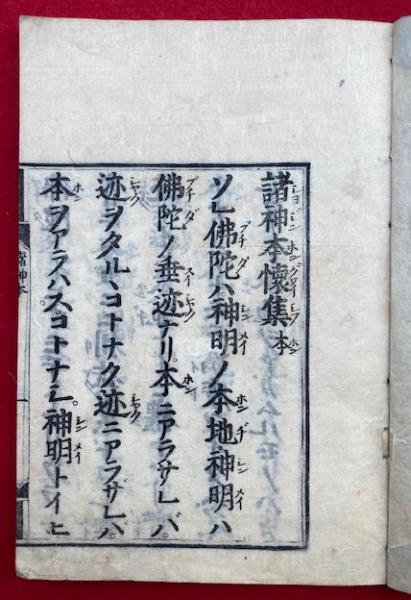 諸神本懐集 本
ソレ佛陀ハ神明ノ本地。神明ハ
佛陀ノ垂迹ナリ本ニアラサレハ。
迹ヲタルヽコトナク迹ニアラザレバ
本ヲアラハスコトナシ。神明トイヒ